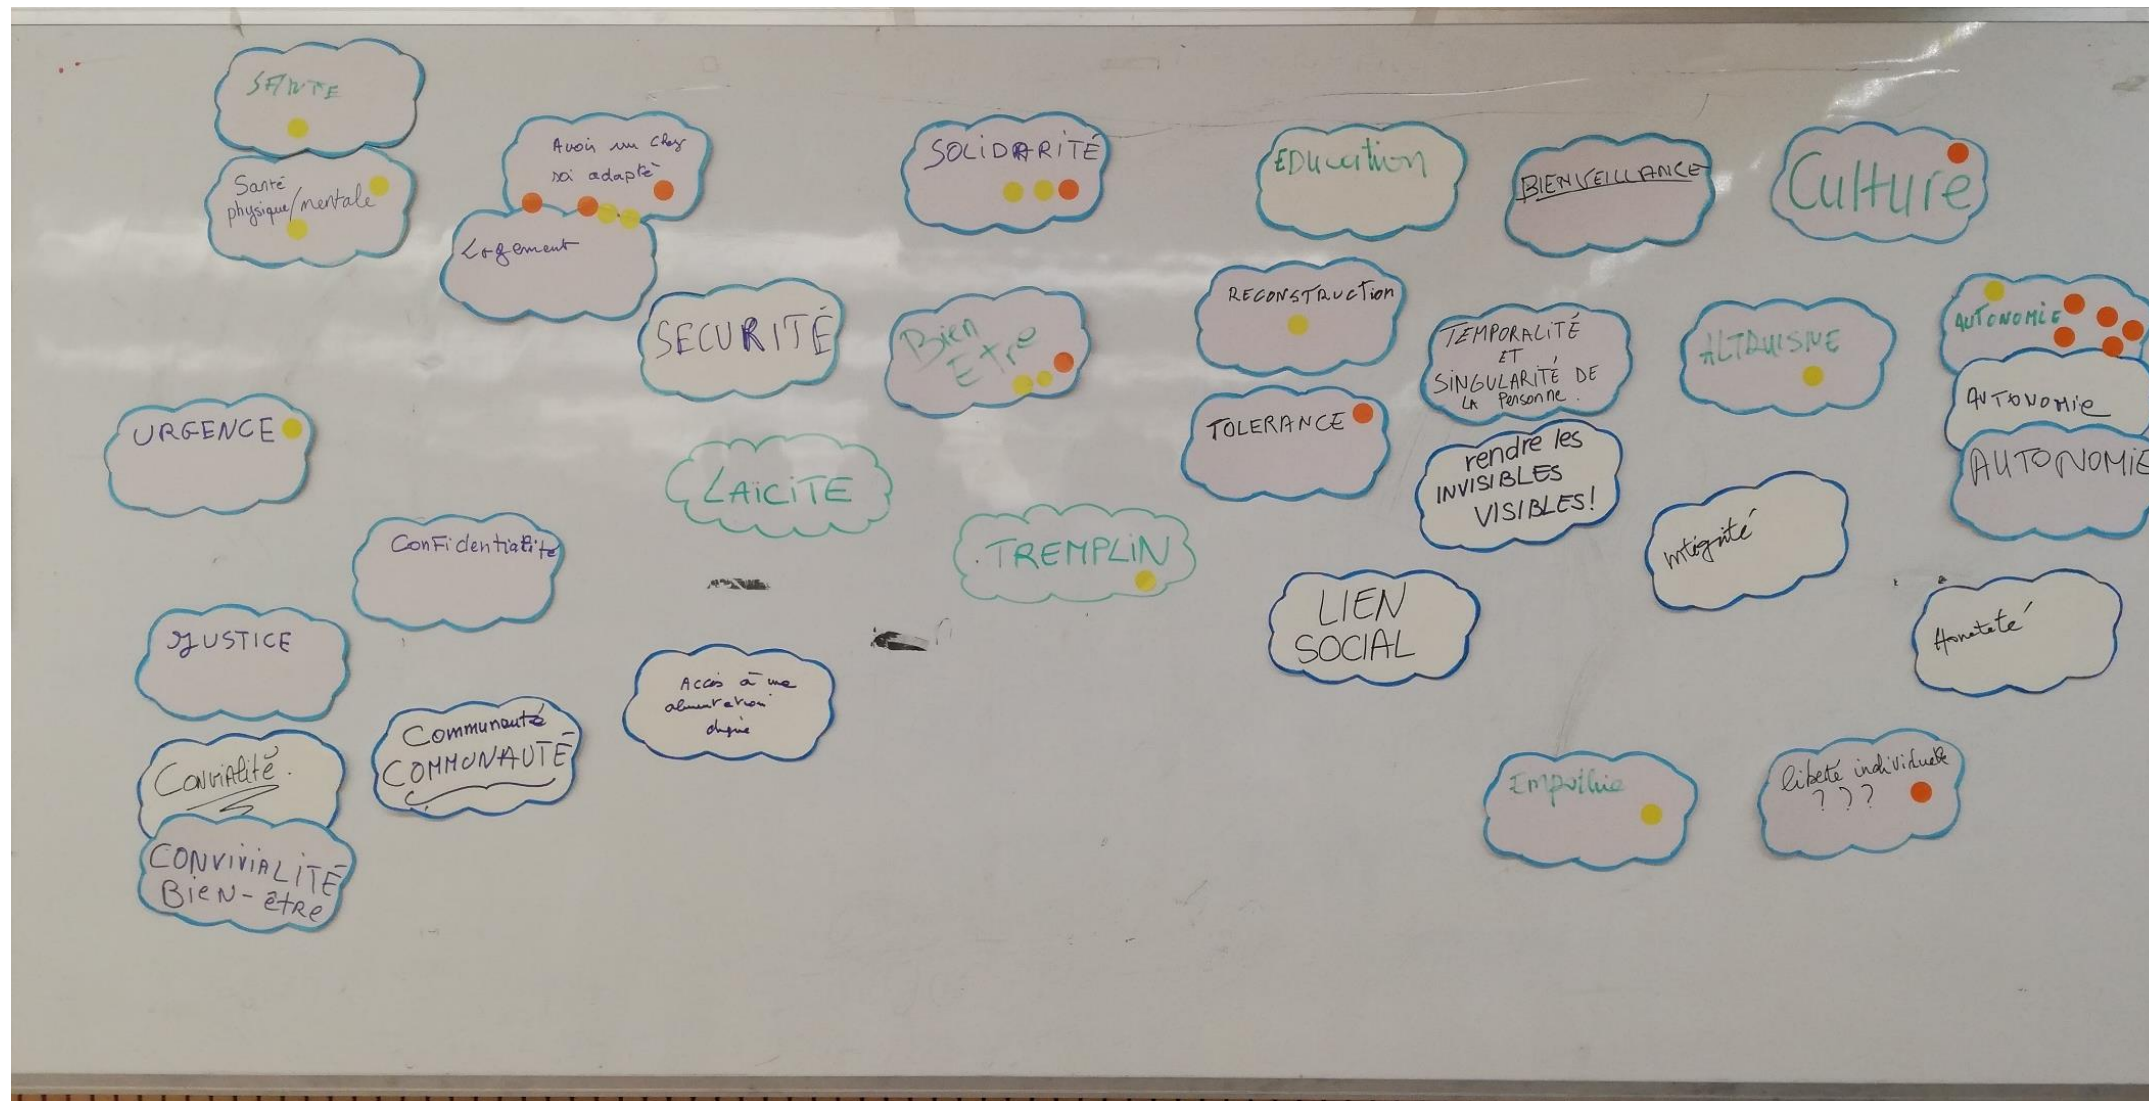 SANTE
Santé
physique/mentale
Avoir un chez
soi adapté
Logement
SOLIDARITÉ
EDucation
BIENVEILLANCE
Culture
SECURITÉ
Bien
Etre
RECONSTRUCTion
TEMPORALITÉ
ET
SINGULARITÉ DE
LA Personne.
ALTRUISME
AUTONOMIE
AUTONOMie
AUTONOMIE
URGENCE
TOLERANCE
rendre les
INVISIBLES
VISIBLES!
LAiCiTE
TREMPLiN
ConFidentialité
intégrité
LIEN
SOCIAL
Honeteté
JUSTICE
Accès à une
alimentation
digne
Communauté
COMMUNAUTÉ
Convialité.
CONViViALiTÉ
BieN-êtRe
Empathie
liberté individuelle
???